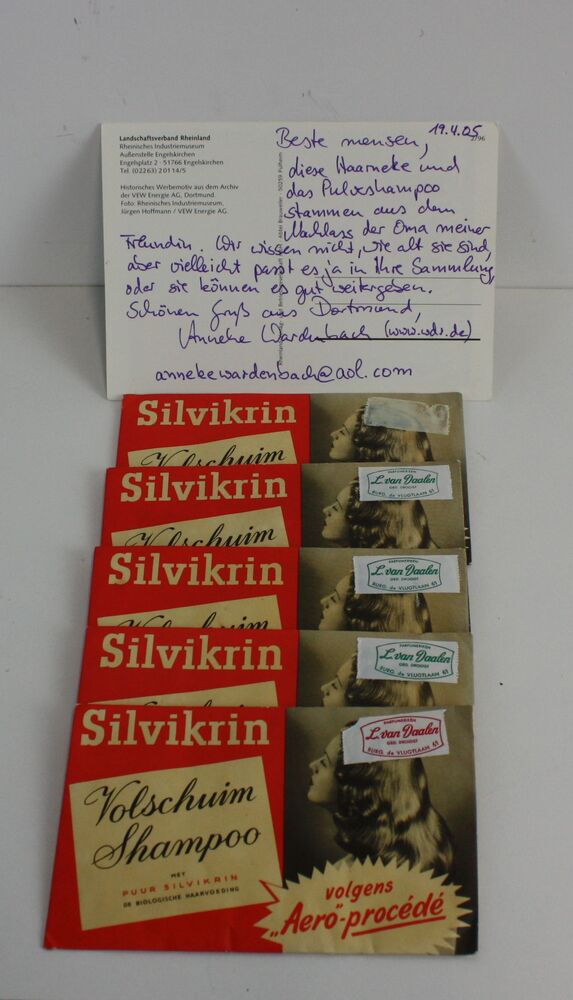 Landschaftsverband Rheinland
Rheinisches Industriemuseum
Außenstelle Engelskirchen
Engelsplatz 2 · 51766 Engelskirchen
Tel. (02263) 20114/5
Historisches Werbemotiv aus dem Archiv
der VEW Energie AG, Dortmund.
Foto: Rheinisches Industriemuseum,
Jürgen Hoffmann / VEW Energie AG.
19.4.05
2/96
Beste mensen,
diese Haarneke und
das Pulvershampoo
stammen aus dem
Nachlass der Oma meiner
Freundin. Wir wissen nicht, wie alt sie sind,
aber vielleicht passt es ja in Ihre Sammlung
oder sie können es gut weitergeben.
Schönen Gruß aus Dortmund,
Anneke Wardenbach (www.wdr.de)
annekewardenbach@aol.com
50259 Pulheim
Silvikrin
Volschuim
Silvikrin
Volschuim
PARFUMERIEEN
L. van Daalen
GED. DROGIST
BURG. de VLUGTLAAN 65
Silvikrin
Volschuim
PARFUMERIEEN
L. van Daalen
GED. DROGIST
BURG. de VLUGTLAAN 65
Silvikrin
PARFUMERIEEN
L. van Daalen
GED. DROGIST
BURG. de VLUGTLAAN 65
Silvikrin
PARFUMERIEEN
L. van Daalen
GED. DROGIST
BURG. de VLUGTLAAN 65
Volschuim
Shampoo
MET
PUUR SILVIKRIN
DE BIOLOGISCHE HAARVOEDING
volgens
„Aero"-procédé